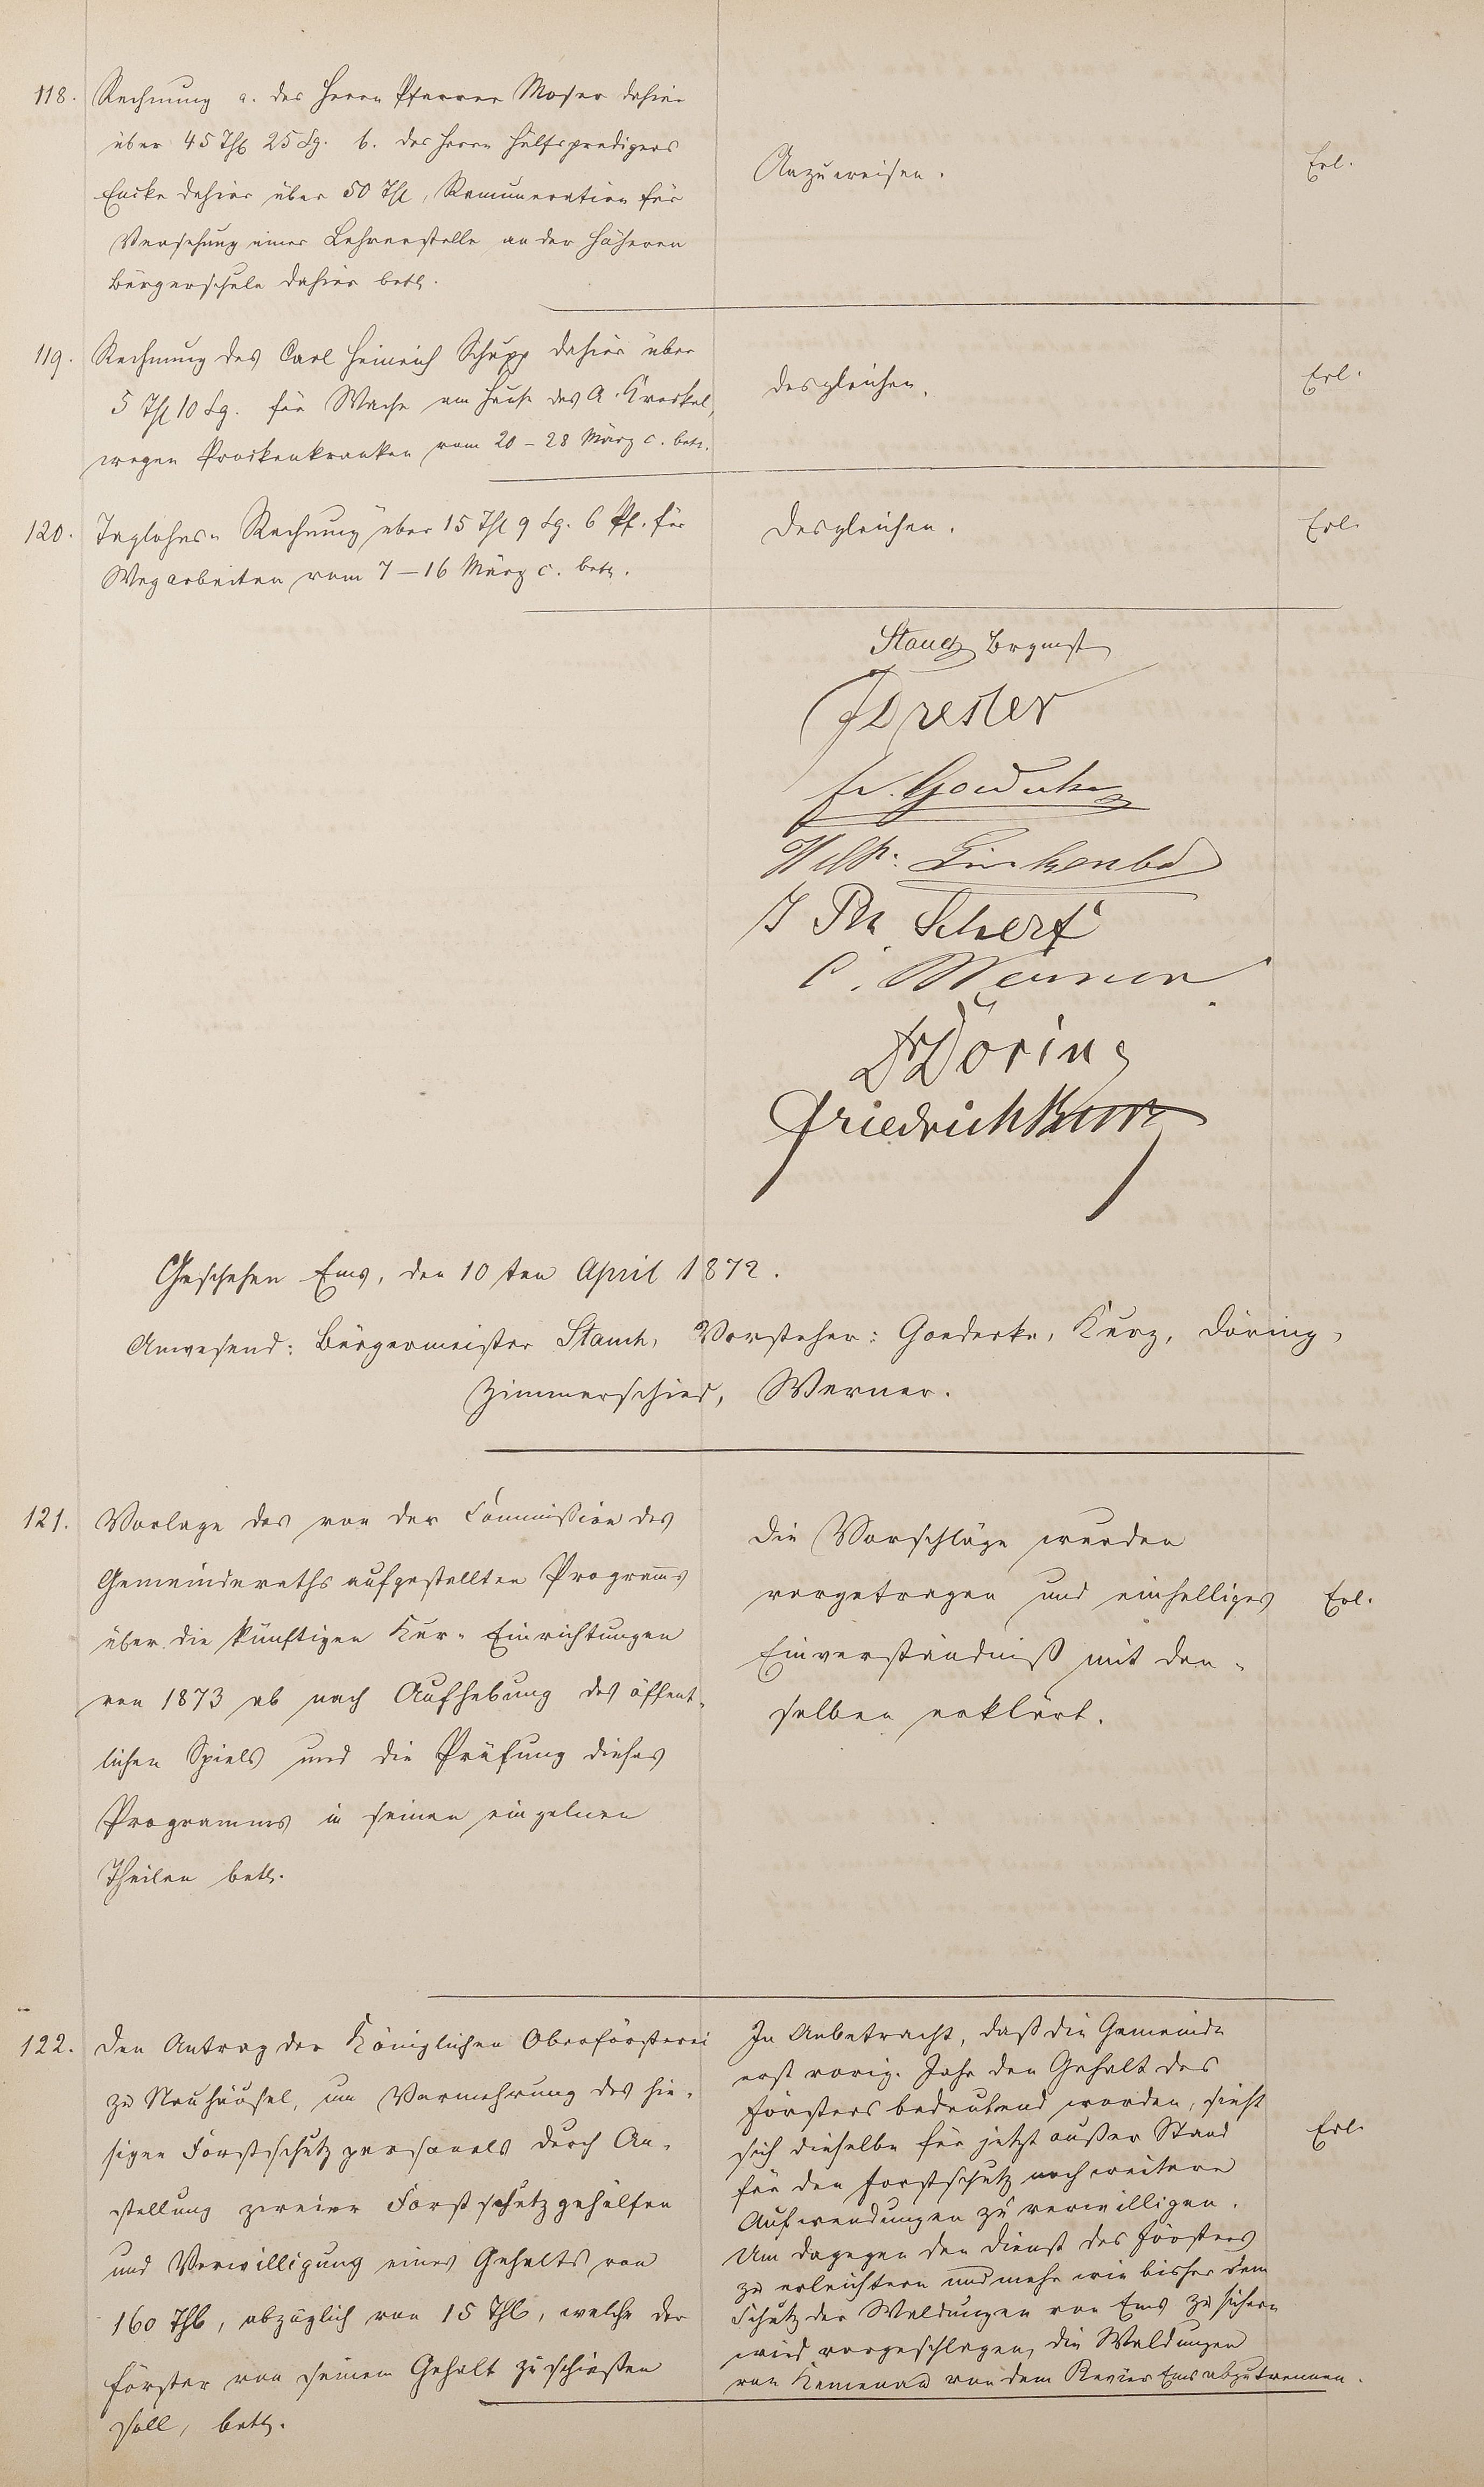 118. Rechnung a. des Herrn Pfarrer Moser dahier
über 45 Thl 25 Sg. b. des Herrn Hülfspredigers
Encke dahier über 50 Thl, Remuneration für
Versehung einer Lehrerstelle an der höheren
Bürgerschule dahier betr.
Anzuweisen.
Erl.
119. Rechnung des Carl Heinrich Schupp dahier über
5 Thl 10 Sg. für Wache am Hause des A. Kreckel,
wegen Pockenkranken vom 20 – 28 März c. betr.
desgleichen.
Erl.
120. Taglohns- Rechnung über 15 Thl 9 Sg. 6 Pf. für
Wegarbeiten vom 7 – 16 März c. betr.
desgleichen.
Erl.
Stauch Brgmst
F Drester
Fr. Goedecke
Wilh. Linkenb
J Ph Scherf
C. Werner
Dr Döring
Friedrich Kurz
Geschehen Ems, den 10ten April 1872.
Anwesend: Bürgermeister Stauch, Vorsteher: Goedecke, Kurz, Döring,
Zimmerschied, Werner.
121. Vorlage des von der Commission des
Gemeinderaths aufgestellten Programms
über die künftigen Kur- Einrichtungen
von 1873 ab nach Aufhebung des öffent-
lichen Spiels und die Prüfung dieses
Programms in seinen einzelnen
Theilen betr.
Die Vorschläge wurden
vorgetragen und einhelliges
Einverständniß mit den-
selben erklärt.
Erl.
122. Den Antrag der Königlichen Oberförsterei
zu Neuhäusel, um Vermehrung des hie-
sigen Forstschutzpersonals durch An-
stellung zweier Forstschutzgehülfen
und Verwilligung eines Gehalts von
160 Thl, abzüglich von 15 Thl, welche der
Förster von seinem Gehalt zuschießen
soll, betr.
In Anbetracht, daß die Gemeinde
erst vorig. Jahr den Gehalt des
Försters bedeutend worden, sieht
sich dieselbe für jetzt außer Stand
für den Forstschutz noch weitere
Aufwendungen zu verwilligen.
Um dagegen den Dienst des Försters
zu erleichtern und mehr wie bisher dem
Schutz der Waldungen von Ems zu sichern
wird vorgeschlagen, die Waldungen
von Kemenau von dem Revier Ems abzutrennen.
Erl.